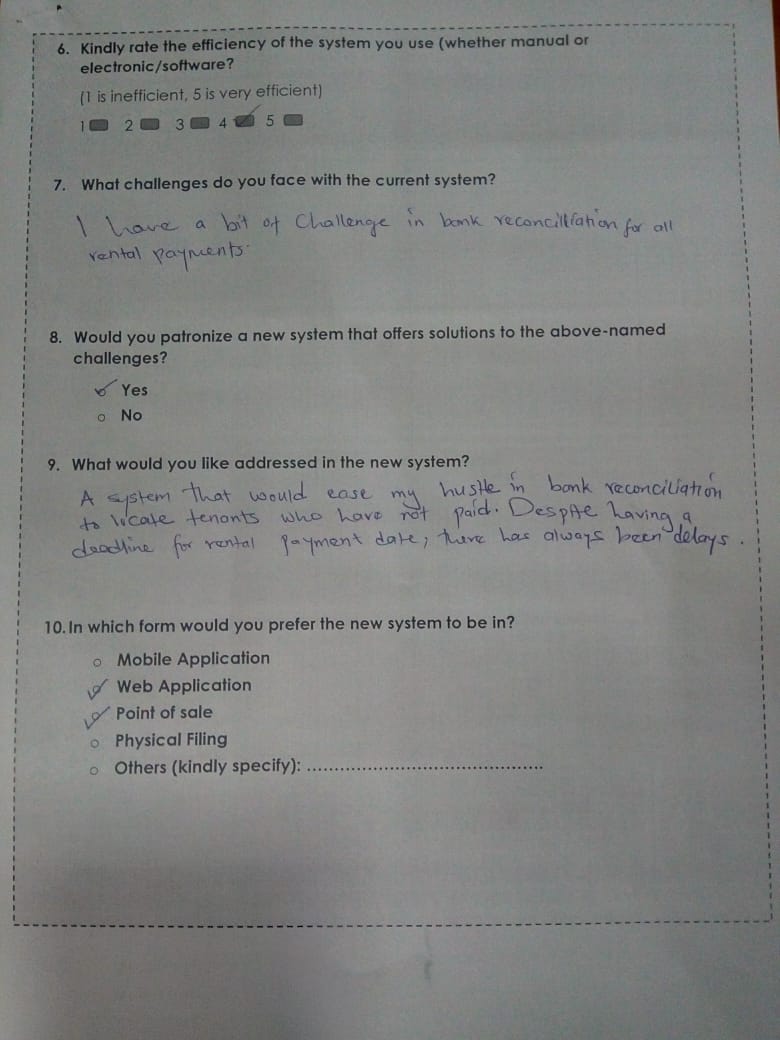 6. Kindly rate the efficiency of the system you use (whether manual or
electronic/software?
(1 is inefficient, 5 is very efficient)
1 2 3 4 5
7. What challenges do you face with the current system?
I have a bit of Challenge in bank reconcilliation for all
rental payments.
8. Would you patronize a new system that offers solutions to the above-named
challenges?
Yes
No
9. What would you like addressed in the new system?
A system that would ease my hustle in bank reconciliation
to locate tenants who have not paid. Despite having a
deadline for rental payment date, there has always been delays.
10. In which form would you prefer the new system to be in?
Mobile Application
Web Application
Point of sale
Physical Filing
Others (kindly specify): ............................................